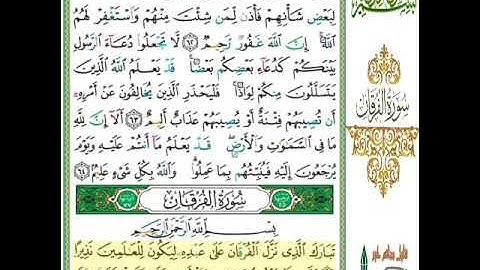 لِبَعْضِ شَأْنِهِمْ فَأْذَن لِّمَن شِئْتَ مِنْهُمْ وَاسْتَغْفِرْ لَهُمُ
اللَّهَ إِنَّ اللَّهَ غَفُورٌ رَّحِيمٌ ٦٢ لَّا تَجْعَلُوا دُعَاءَ الرَّسُولِ
بَيْنَكُمْ كَدُعَاءِ بَعْضِكُم بَعْضًا قَدْ يَعْلَمُ اللَّهُ الَّذِينَ
يَتَسَلَّلُونَ مِنكُمْ لِوَاذًا فَلْيَحْذَرِ الَّذِينَ يُخَالِفُونَ عَنْ أَمْرِهِ
أَن تُصِيبَهُمْ فِتْنَةٌ أَوْ يُصِيبَهُمْ عَذَابٌ أَلِيمٌ ٦٣ أَلَا إِنَّ لِلَّهِ
مَا فِي السَّمَاوَاتِ وَالْأَرْضِ قَدْ يَعْلَمُ مَا أَنتُمْ عَلَيْهِ وَيَوْمَ
يُرْجَعُونَ إِلَيْهِ فَيُنَبِّئُهُم بِمَا عَمِلُوا وَاللَّهُ بِكُلِّ شَيْءٍ عَلِيمٌ ٦٤
سُورَةُ الْفُرْقَانِ
بِسْمِ اللَّهِ الرَّحْمَٰنِ الرَّحِيمِ
تَبَارَكَ الَّذِي نَزَّلَ الْفُرْقَانَ عَلَىٰ عَبْدِهِ لِيَكُونَ لِلْعَالَمِينَ نَذِيرًا
سُورَةُ الْفُرْقَانِ